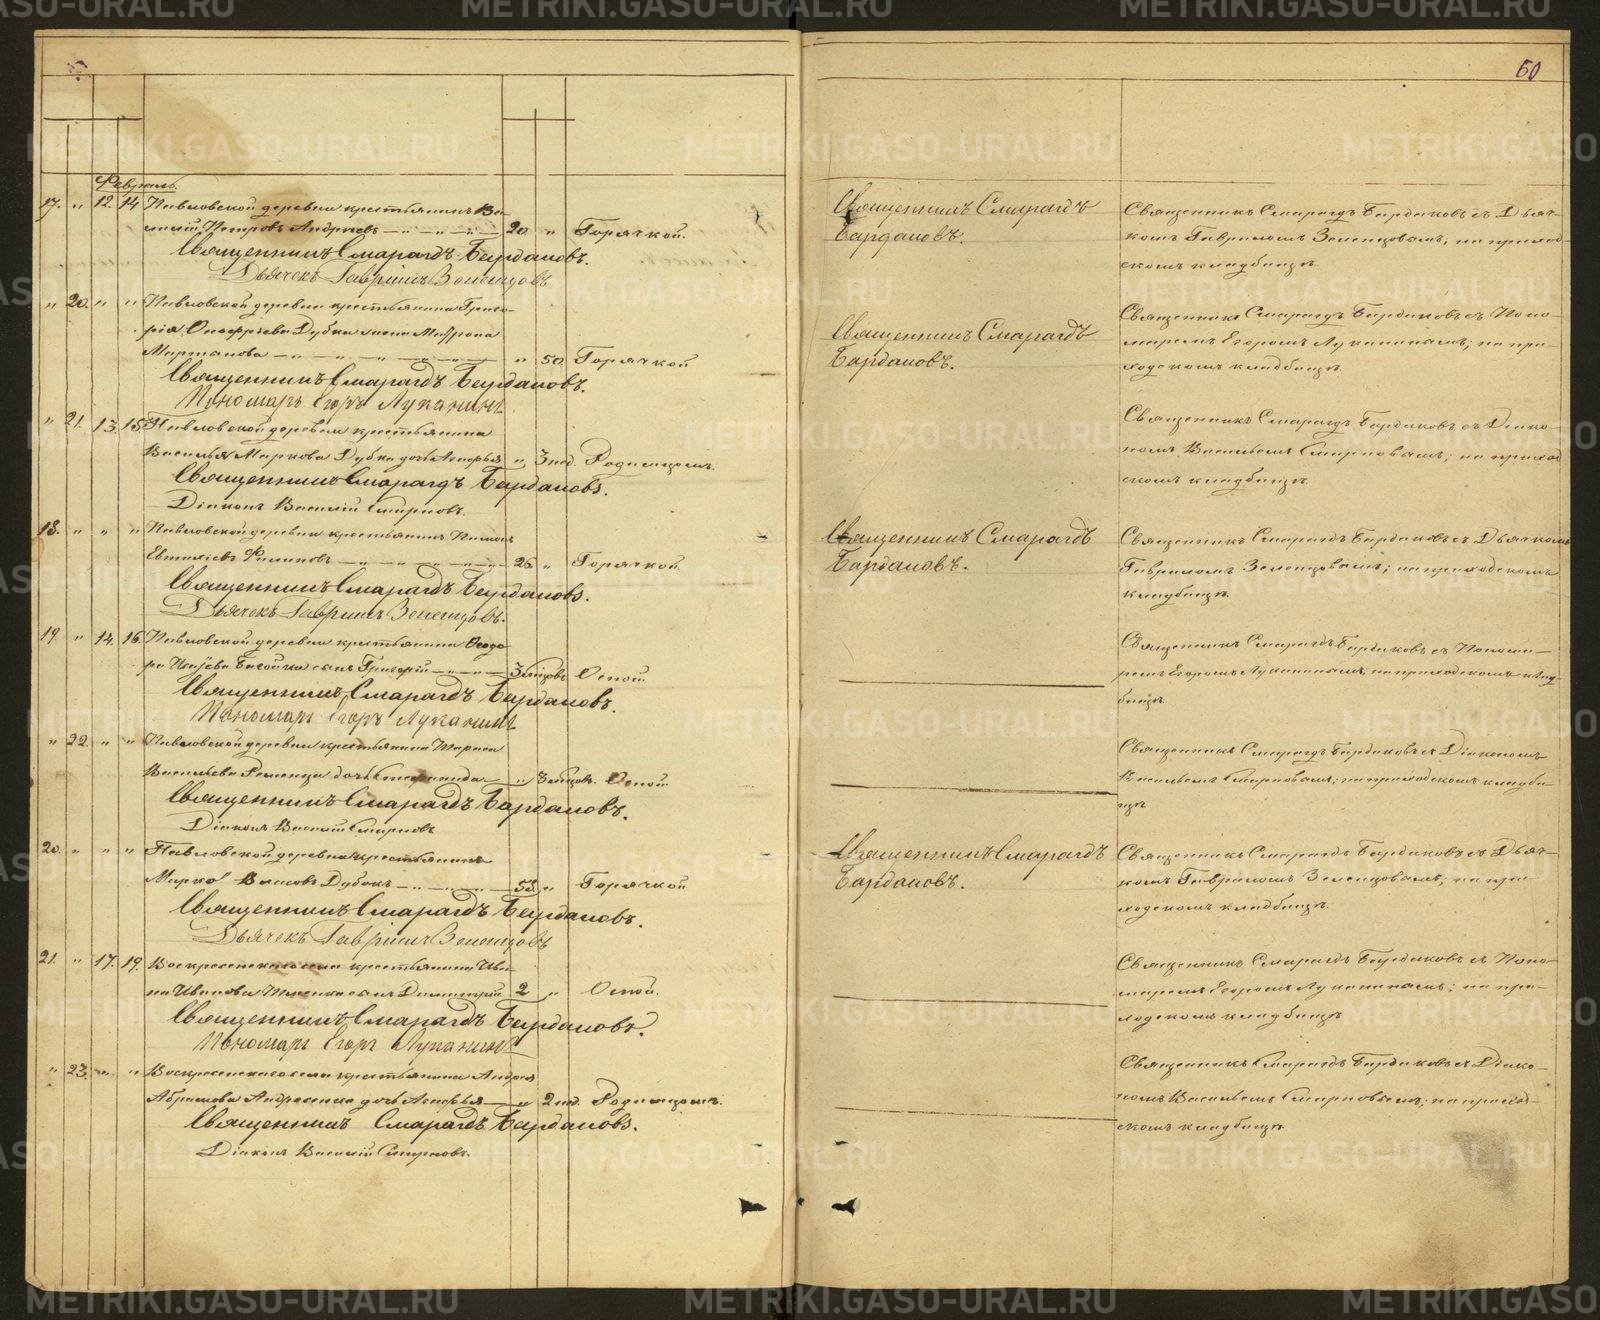 60
Февраль.
17. " 12. 14 Павловской деревни крестьянинъ Ва-
силій Петровъ Андреевъ 20. " Горячкой.
Священникъ Смарагдъ Бардаковъ.
Дьячекъ Гавріилъ Зеленцовъ
" 20. " " Павловской деревни крестьянина Григо-
рія Дубка жена
Мартанова " 50. Горячкой
Священникъ Смарагдъ Бардаковъ.
Пономарь Егоръ Луканинъ
" 21. 13. 15. Павловской деревни крестьянина
Василья Маркова Дубка дочь Агафья " 3 нед. Родимцомъ.
Священникъ Смарагдъ Бардаковъ.
Діаконъ Василій Смирновъ.
18. " " " Павловской деревни крестьянинъ
26. " Горячкой.
Священникъ Смарагдъ Бардаковъ.
Дьячекъ Гавріилъ Зеленцовъ.
19. " 14. 16. Павловской деревни крестьянина Ѳедо-
ра сынъ Григорій Оспой
Священникъ Смарагдъ Бардаковъ.
Пономарь Егоръ Луканинъ
" 22. " " Павловской деревни крестьянина
Васильева дочь " Оспой
Священникъ Смарагдъ Бардаковъ.
Діаконъ Василій Смирновъ
20. " " " Павловской деревни крестьянинъ
Марко Власовъ Дубокъ 53. " Горячкой
Священникъ Смарагдъ Бардаковъ.
Дьячекъ Гавріилъ Зеленцовъ
21. " 17. 19. Воскресенскаго села крестьянина Ива-
на Иванова сынъ Димитрій 2 " Оспой.
Священникъ Смарагдъ Бардаковъ.
Пономарь Егоръ Луканинъ
" 23. " " Воскресенскаго села крестьянина Андрея
Абрамова дочь Агафья " 2 нед. Родимцомъ.
Священникъ Смарагдъ Бардаковъ.
Діаконъ Василій Смирновъ.
Священникъ Смарагдъ
Бардаковъ.
Священникъ Смарагдъ Бардаковъ съ Дьяч-
комъ Гавриломъ Зеленцовымъ, на приход-
скомъ кладбищѣ.
Священникъ Смарагдъ
Бардаковъ.
Священникъ Смарагдъ Бардаковъ съ Поно-
маремъ Егоромъ Луканинымъ; на при-
ходскомъ кладбищѣ.
Священникъ Смарагдъ Бардаковъ съ Діако-
номъ Васильемъ Смирновымъ; на приход-
скомъ кладбищѣ.
Священникъ Смарагдъ
Бардаковъ.
Священникъ Смарагдъ Бардаковъ съ Дьячкомъ
Гавриломъ Зеленцовымъ; на приходскомъ
кладбищѣ.
Священникъ Смарагдъ Бардаковъ съ Понома-
ремъ Егоромъ Луканинымъ, на приходскомъ клад-
бищѣ.
Священникъ Смарагдъ Бардаковъ съ Діакономъ
Васильемъ Смирновымъ; на приходскомъ кладби-
щѣ
Священникъ Смарагдъ
Бардаковъ.
Священникъ Смарагдъ Бардаковъ съ Дьяч-
комъ Гавриломъ Зеленцовымъ; на при-
ходскомъ кладбищѣ.
Священникъ Смарагдъ Бардаковъ съ Поно-
маремъ Егоромъ Луканинымъ; на при-
ходскомъ кладбищѣ
Священникъ Смарагдъ Бардаковъ съ Діако-
номъ Васильемъ Смирновымъ; на приход-
скомъ кладбищѣ.
METRIKI.GASO-URAL.RU